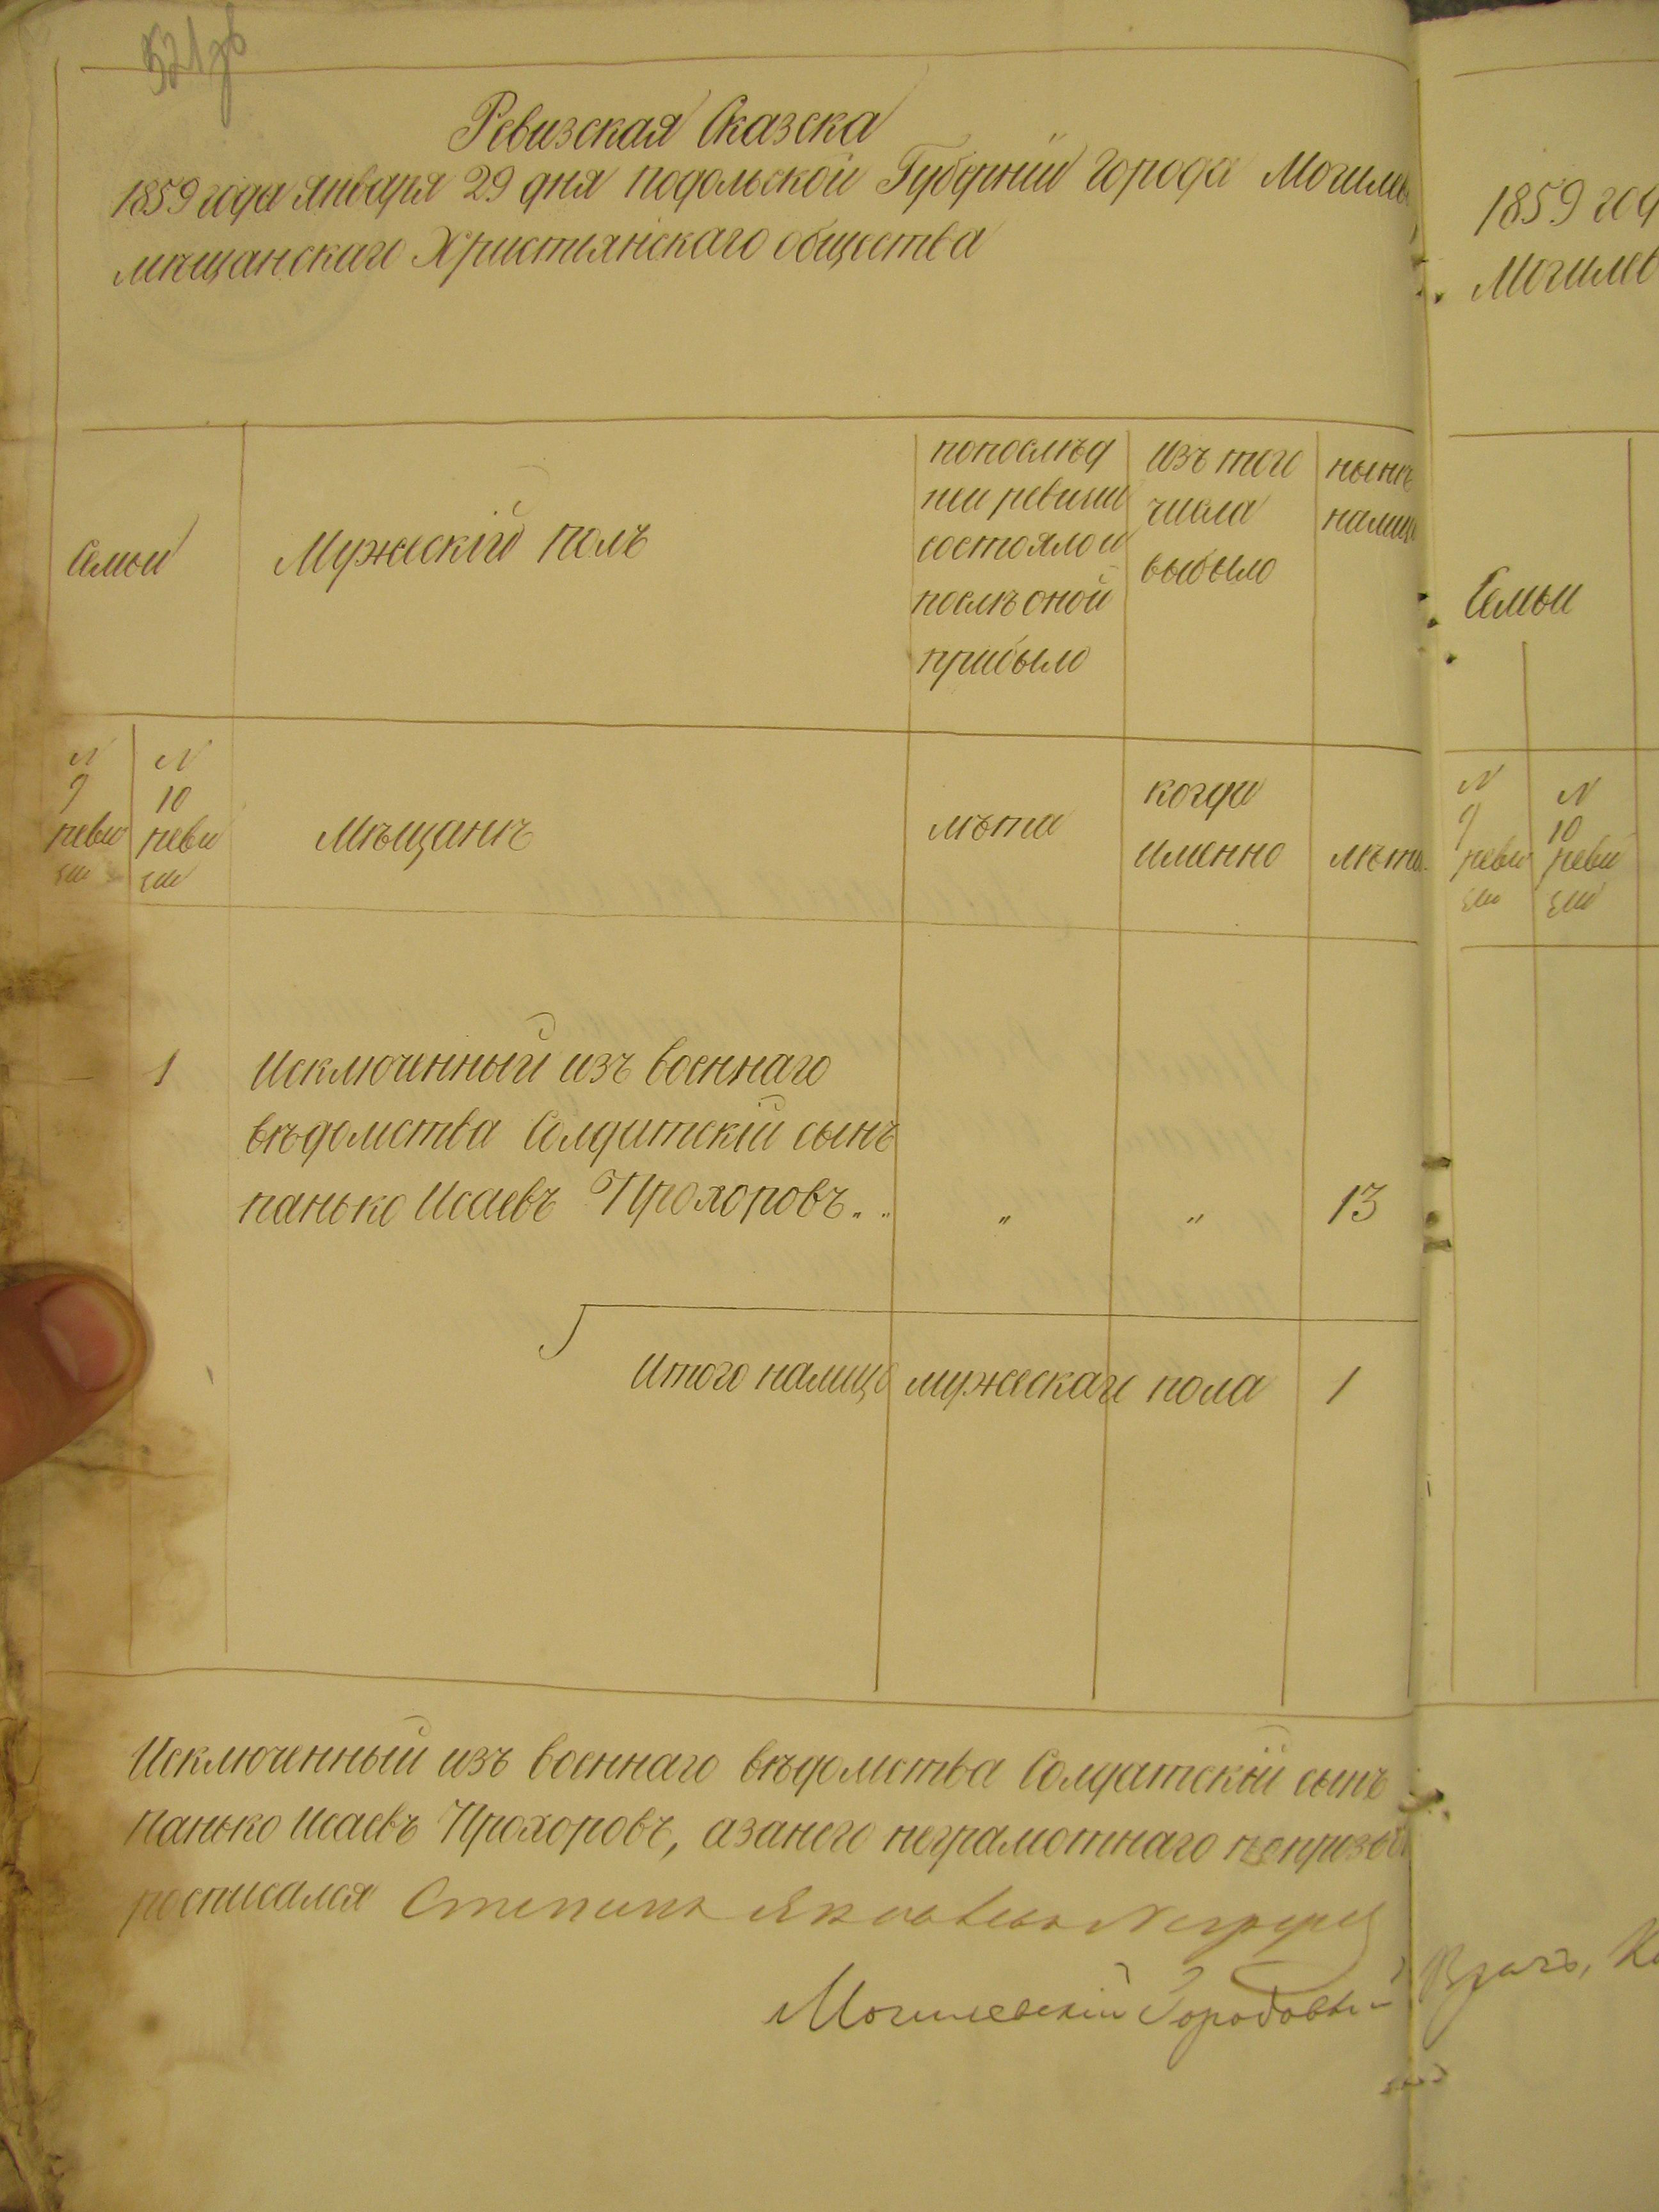 521зв
Ревизская Сказска
1859 года января 29 дня подольской Губерніи города Могиле
мѣщанскаго Христіянскаго общества
Семьи
Мужескій полъ
попослѣд
ней ревизіи
состояло и
послѣ оной
прибыло
изъ того
числа
выбыло
нынѣ
налицо
N
9
реви
зіи
N
10
реви
зіи
Мѣщанѣ
лѣта
когда
именно
лѣта
1 Исключенный изъ военнаго
вѣдомства Солдатскій сынъ
панько Исаевъ Прохоровъ. .. " " 13
Итого налицо мужескаго пола 1
Исключенный изъ военнаго вѣдомства Солдатскій сынъ
Панько Исаевъ Прохоровъ, азанего неграмотнаго
росписался Степанъ
Могилевскій Городовый Врачъ,
1859 год
Могилев
Семьи
N
9
реви
зіи
N
10
реви
зіи